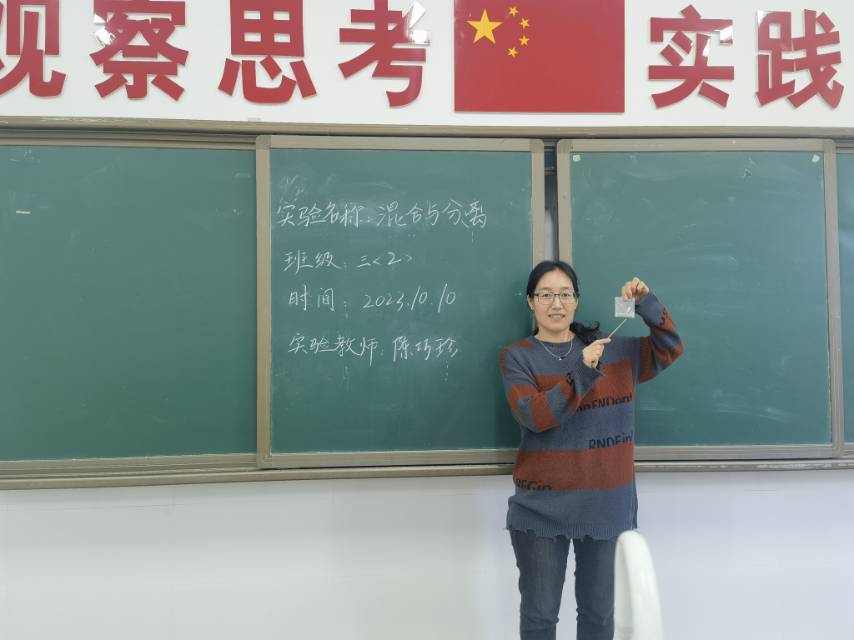 观察思考 实践
实验名称：混合与分离
班级：三<2>
时间：2023.10.10
实验教师：陈巧珍
BNDEin